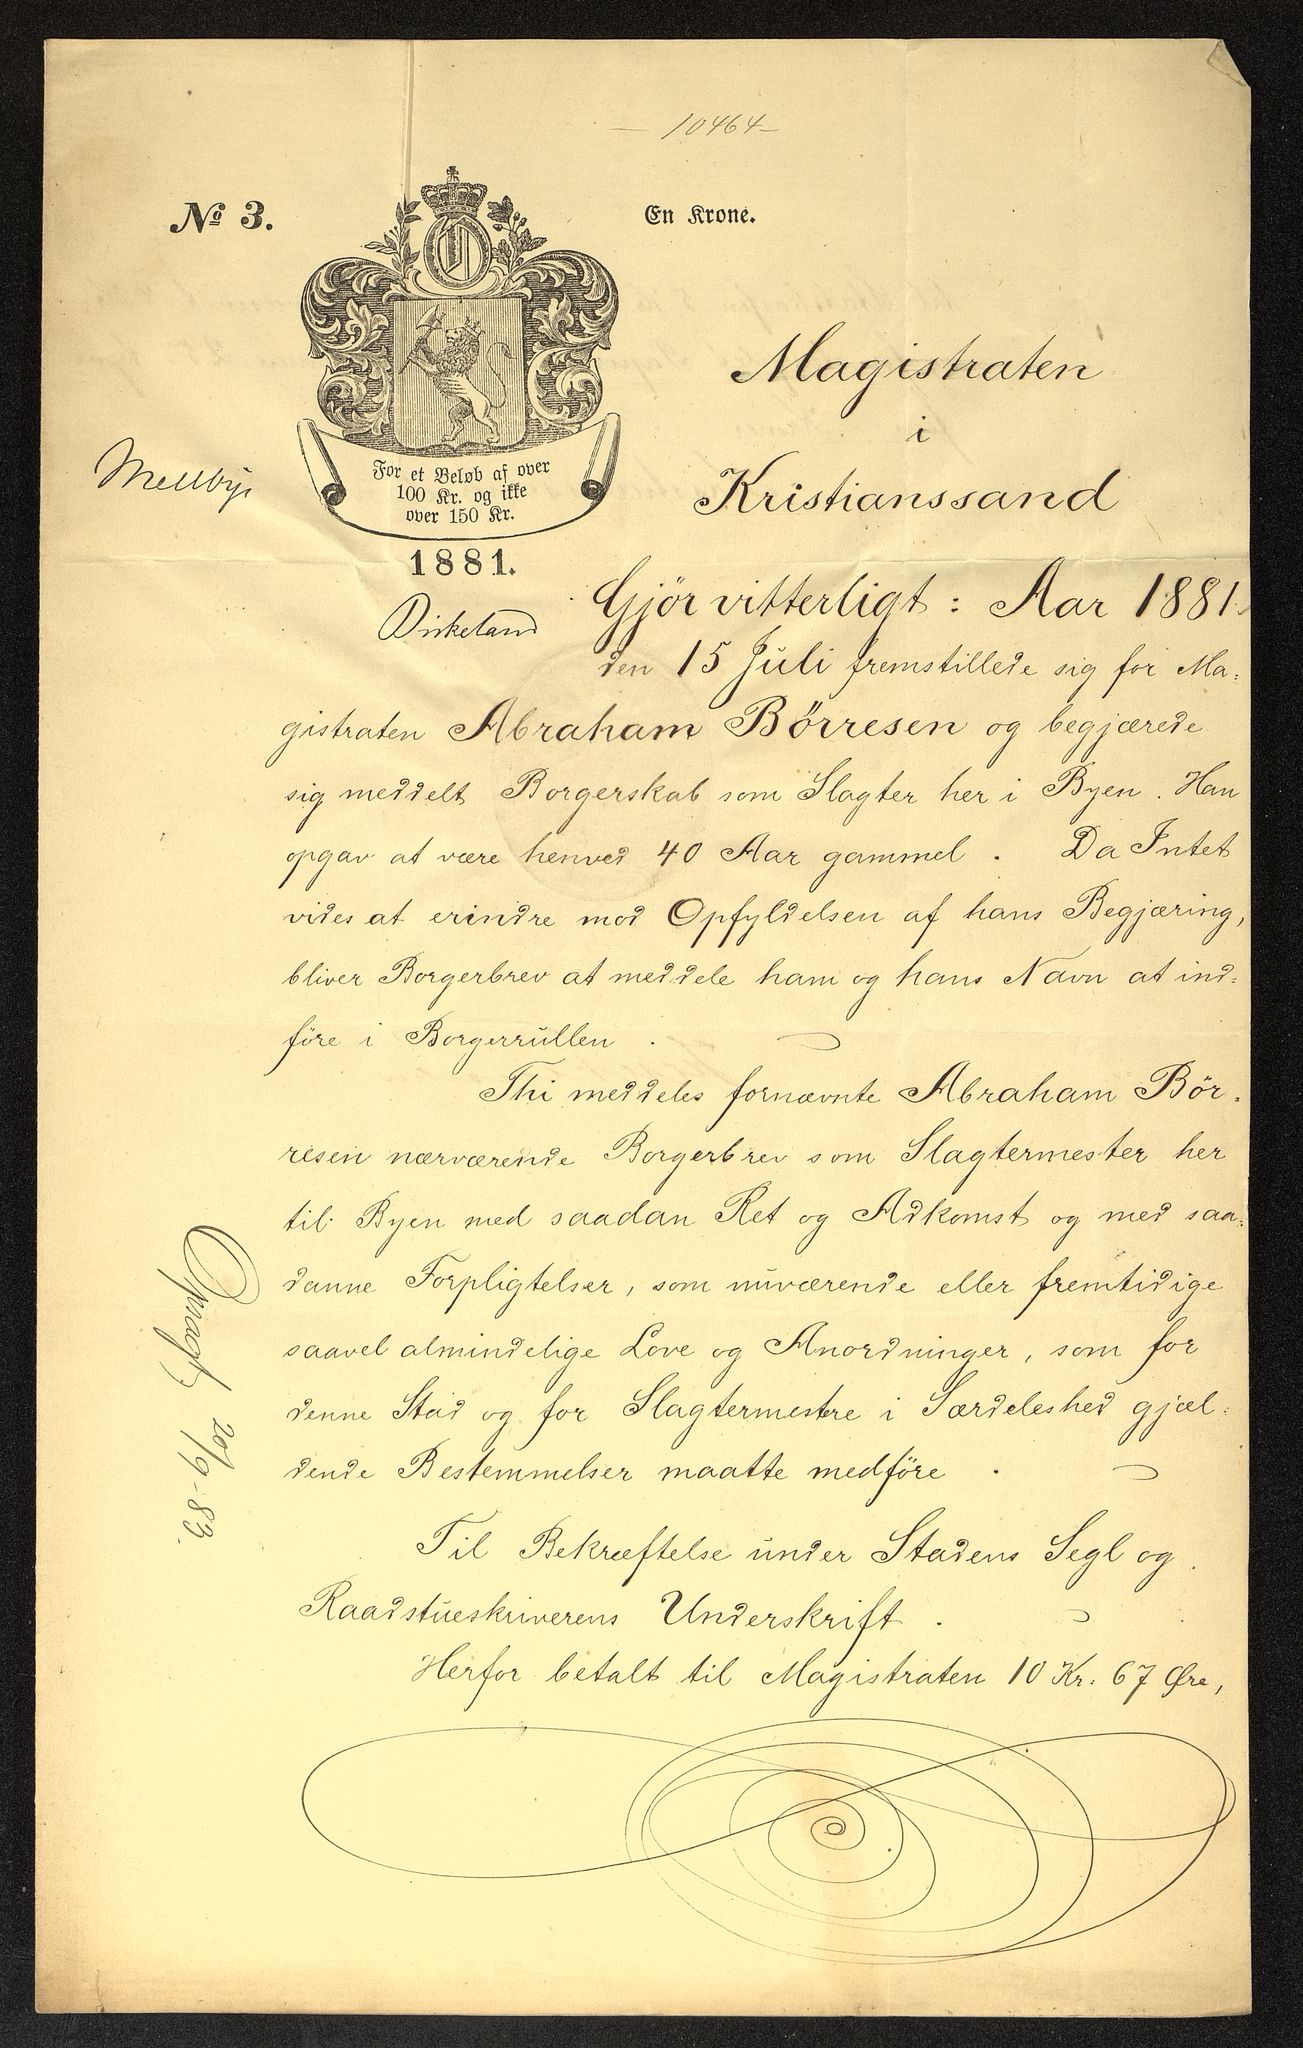 — 10464 —
No 3.
En Krone.
O
For et Beløb af over
100 Kr. og ikke
over 150 Kr.
1881.
Mellbye
Birkeland
Magistraten
i
Kristianssand
Gjör vitterligt: Aar 1881
den 15 Juli fremstillede sig for Ma-
gistraten Abraham Börresen og begjærede
sig meddelt Borgerskab som Slagter her i Byen. Han
opgav at være henved 40 Aar gammel. Da Intet
vides at erindre mod Opfyldelsen af hans Begjæring,
bliver Borgerbrev at meddele ham og hans Navn at ind-
före i Borgerrullen.
Thi meddeles fornævnte Abraham Bör-
resen nærværende Borgerbrev som Slagtermester her
til Byen med saadan Ret og Adkomst og med saa-
danne Forpligtelser, som nuværende eller fremtidige
saavel almindelige Love og Anordninger, som for
denne Stad og for Slagtermestre i Særdeleshed gjæl-
dende Bestemmelser maatte medföre.
Til Bekræftelse under Stadens Segl og
Raadstueskriverens Underskrift.
Herfor betalt til Magistraten 10 Kr. 67 Øre,
Opsagt 20/9-83.